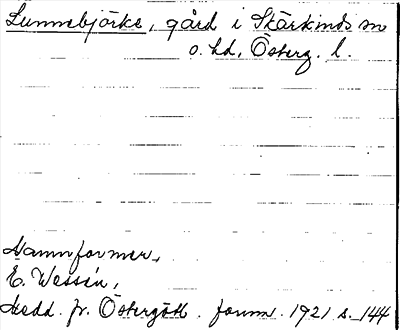 Lunnebjörke, gård i Skärkinds sn
o. hd, Österg. l.
Namnformer.
E. Wessén,
Medd. fr. Östergötl. fornm. 1921 s. 144